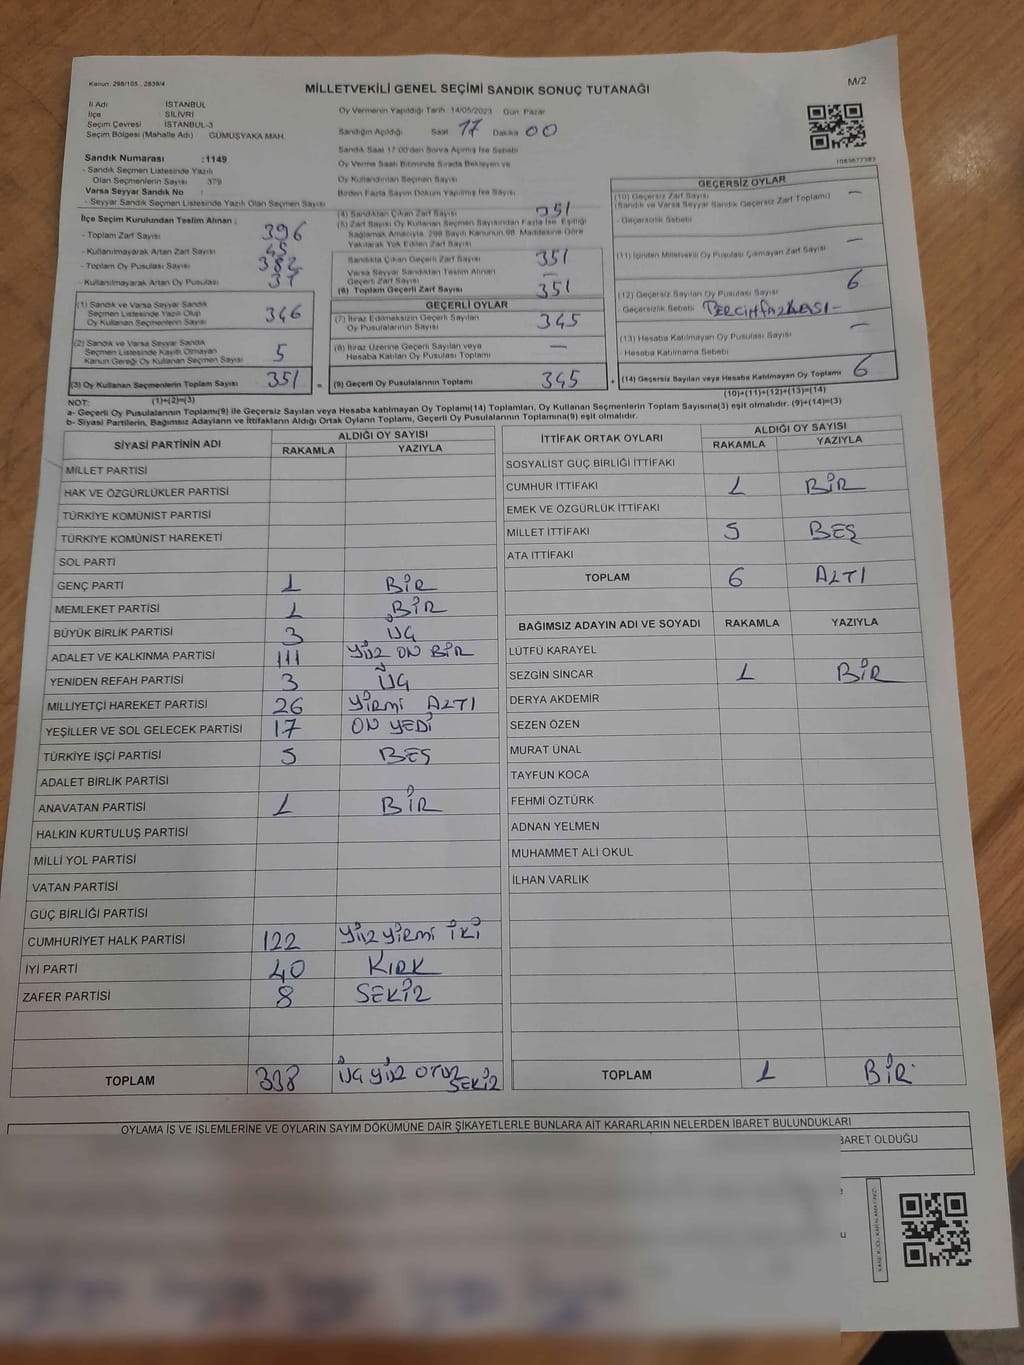 Kanun: 298/105 , 2839/4
MİLLETVEKİLİ GENEL SEÇİMİ SANDIK SONUÇ TUTANAĞI
M/2
İl Adı İSTANBUL
İlçe SİLİVRİ
Seçim Çevresi İSTANBUL-3
Seçim Bölgesi (Mahalle Adı) GÜMÜŞYAKA MAH.
Oy Vermenin Yapıldığı Tarih: 14/05/2023 Gün: Pazar
Sandığın Açıldığı Saat 17 Dakika 00
Sandık Saat 17:00'den Sonra Açılmış İse Sebebi
Oy Verme Saati Bitiminde Sırada Bekleyen ve
Oy Kullandırılan Seçmen Sayısı
Birden Fazla Sayım Döküm Yapılmış İse Sayısı
Sandık Numarası : 1149
- Sandık Seçmen Listesinde Yazılı
Olan Seçmenlerin Sayısı 379
Varsa Seyyar Sandık No :
- Seyyar Sandık Seçmen Listesinde Yazılı Olan Seçmen Sayısı
İlçe Seçim Kurulundan Teslim Alınan ;
- Toplam Zarf Sayısı 396
- Kullanılmayarak Artan Zarf Sayısı 45
- Toplam Oy Pusulası Sayısı 382
- Kullanılmayarak Artan Oy Pusulası 31
(1) Sandık ve Varsa Seyyar Sandık
Seçmen Listesinde Yazılı Olup
Oy Kullanan Seçmenlerin Sayısı 346
(2) Sandık ve Varsa Seyyar Sandık
Seçmen Listesinde Kayıtlı Olmayan
Kanun Gereği Oy Kullanan Seçmen Sayısı 5
(3) Oy Kullanan Seçmenlerin Toplam Sayısı 351 =
(1)+(2)=(3)
(4) Sandıktan Çıkan Zarf Sayısı 351
(5) Zarf Sayısı Oy Kullanan Seçmen Sayısından Fazla İse, Eşitliği
Sağlamak Amacıyla, 298 Sayılı Kanunun 98. Maddesine Göre
Yakılarak Yok Edilen Zarf Sayısı
Sandıkta Çıkan Geçerli Zarf Sayısı 351
Varsa Seyyar Sandıktan Teslim Alınan
Geçerli Zarf Sayısı —
(6) Toplam Geçerli Zarf Sayısı 351
GEÇERLİ OYLAR
(7) İtiraz Edilmeksizin Geçerli Sayılan
Oy Pusulalarının Sayısı 345
(8) İtiraz Üzerine Geçerli Sayılan veya
Hesaba Katılan Oy Pusulası Toplamı —
(9) Geçerli Oy Pusulalarının Toplamı 345 +
GEÇERSİZ OYLAR
(10) Geçersiz Zarf Sayısı
(Sandık ve Varsa Seyyar Sandık Geçersiz Zarf Toplamı) —
- Geçersizlik Sebebi
(11) İçinden Milletvekili Oy Pusulası Çıkmayan Zarf Sayısı —
(12) Geçersiz Sayılan Oy Pusulası Sayısı 6
Geçersizlik Sebebi TERCİH FAZLASI -
(13) Hesaba Katılmayan Oy Pusulası Sayısı —
Hesaba Katılmama Sebebi
(14) Geçersiz Sayılan veya Hesaba Katılmayan Oy Toplamı 6
(10)+(11)+(12)+(13)=(14)
NOT:
a- Geçerli Oy Pusulalarının Toplamı(9) ile Geçersiz Sayılan veya Hesaba katılmayan Oy Toplamı(14) Toplamları, Oy Kullanan Seçmenlerin Toplam Sayısına(3) eşit olmalıdır. (9)+(14)=(3)
b- Siyasi Partilerin, Bağımsız Adayların ve İttifakların Aldığı Ortak Oyların Toplamı, Geçerli Oy Pusulalarının Toplamına(9) eşit olmalıdır.
SİYASİ PARTİNİN ADI ALDIĞI OY SAYISI
RAKAMLA YAZIYLA
MİLLET PARTİSİ
HAK VE ÖZGÜRLÜKLER PARTİSİ
TÜRKİYE KOMÜNİST PARTİSİ
TÜRKİYE KOMÜNİST HAREKETİ
SOL PARTİ
GENÇ PARTİ 1 BİR
MEMLEKET PARTİSİ 1 BİR
BÜYÜK BİRLİK PARTİSİ 3 ÜÇ
ADALET VE KALKINMA PARTİSİ 111 YÜZ ON BİR
YENİDEN REFAH PARTİSİ 3 ÜÇ
MİLLİYETÇİ HAREKET PARTİSİ 26 YİRMİ ALTI
YEŞİLLER VE SOL GELECEK PARTİSİ 17 ON YEDİ
TÜRKİYE İŞÇİ PARTİSİ 5 BEŞ
ADALET BİRLİK PARTİSİ
ANAVATAN PARTİSİ 1 BİR
HALKIN KURTULUŞ PARTİSİ
MİLLİ YOL PARTİSİ
VATAN PARTİSİ
GÜÇ BİRLİĞİ PARTİSİ
CUMHURİYET HALK PARTİSİ 122 YÜZ YİRMİ İKİ
İYİ PARTİ 40 KIRK
ZAFER PARTİSİ 8 SEKİZ
TOPLAM 338 ÜÇ YÜZ OTUZ SEKİZ
İTTİFAK ORTAK OYLARI ALDIĞI OY SAYISI
RAKAMLA YAZIYLA
SOSYALİST GÜÇ BİRLİĞİ İTTİFAKI
CUMHUR İTTİFAKI 1 BİR
EMEK VE ÖZGÜRLÜK İTTİFAKI
MİLLET İTTİFAKI 5 BEŞ
ATA İTTİFAKI
TOPLAM 6 ALTI
BAĞIMSIZ ADAYIN ADI VE SOYADI RAKAMLA YAZIYLA
LÜTFÜ KARAYEL
SEZGİN SİNCAR 1 BİR
DERYA AKDEMİR
SEZEN ÖZEN
MURAT ÜNAL
TAYFUN KOCA
FEHMİ ÖZTÜRK
ADNAN YELMEN
MUHAMMET ALİ OKUL
İLHAN VARLIK
TOPLAM 1 BİR
OYLAMA İŞ VE İŞLEMLERİNE VE OYLARIN SAYIM DÖKÜMÜNE DAİR ŞİKAYETLERLE BUNLARA AİT KARARLARIN NELERDEN İBARET BULUNDUKLARI
BARET OLDUĞU